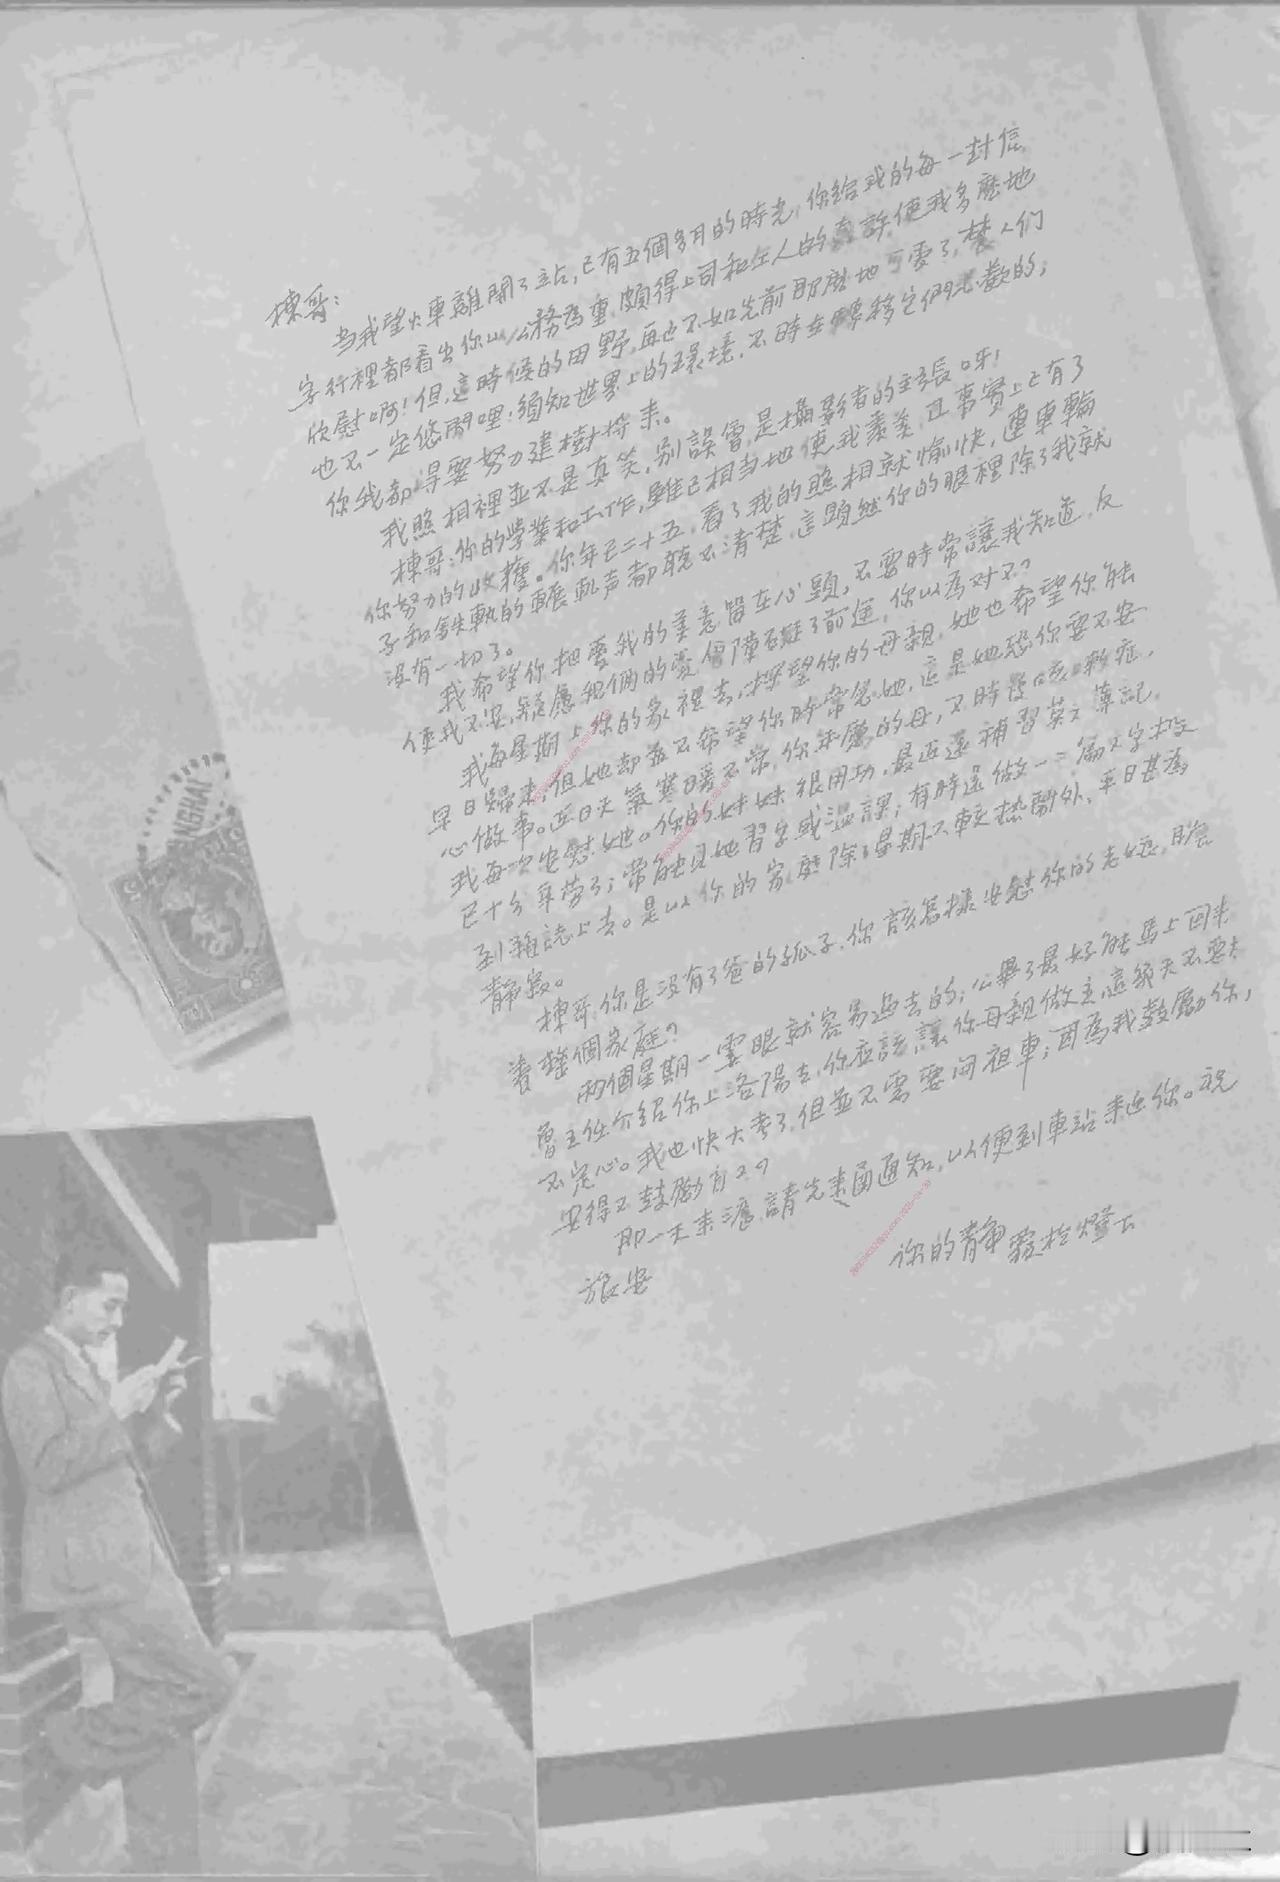 棟哥:
当我望火車離開了站,已有五個多月的時光,你給我的每一封信,
字行裡都看出你以公務為重,頗得上司和 人的 許,使我多麽地
欣慰啊!但,這時候的田野,再也不如先前那麽地可愛了,
也不一定悠閒哩:須知世界上的環境,不時在轉移它們 的;
你我都得要努力建樹將来。
我照相裡並不是真笑,別誤會,是攝影者的主張呀!
棟哥:你的學業和工作,雖已相当地使我羨美,且事實上已有了
你努力的收穫。你年已二十五,看了我的照相就愉快,連車輪
子和鉄軌的輾軋声都聽不清楚,這顕然你的眼裡除了我就
没有一切了。
我希望你把愛我的美意留在心頭,不要時常讓我知道,反
使我不安,疑慮和倆的愛会障礙了前途,你以為对不?
我每星期上你的家裡去,探望你的母親,她也希望你能
早日歸来,但她却並不希望你時常念她,這是她恐你要不安
心做事。近日天氣寒暖不常,你年 的母,又時發咳嗽症,
我每次安慰她。你的妹妹很用功,最近還補習英文簿記,
已十分辛劳了;常能見她習字或温課;有時還做一二篇文字投
到雜誌上去。是以你的家庭除了星期六較热鬧外,平日甚為
靜寂。
棟哥,你是没有了爸的孤子,你該怎樣安慰你的老娘,
着整個家庭?
兩個星期一霎眼就容易過去的;公畢了最好能馬上回来
曾主任介紹你上洛陽去,你应該讓你母親做主,這幾天不要太
不定心。我也快大考了,但並不需要问祖車;因為我鼓勵你,
安得不鼓勵自己?
那一天来滬,請先来函通知,以便到車站来迎你。祝
旅安
你的靜霞於燈下